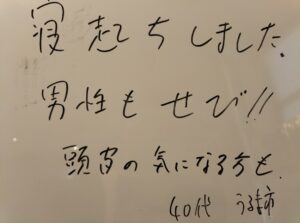 寝起ちしました。
男性もぜひ!!
頭皮の気になる方も.
40代 うるま市